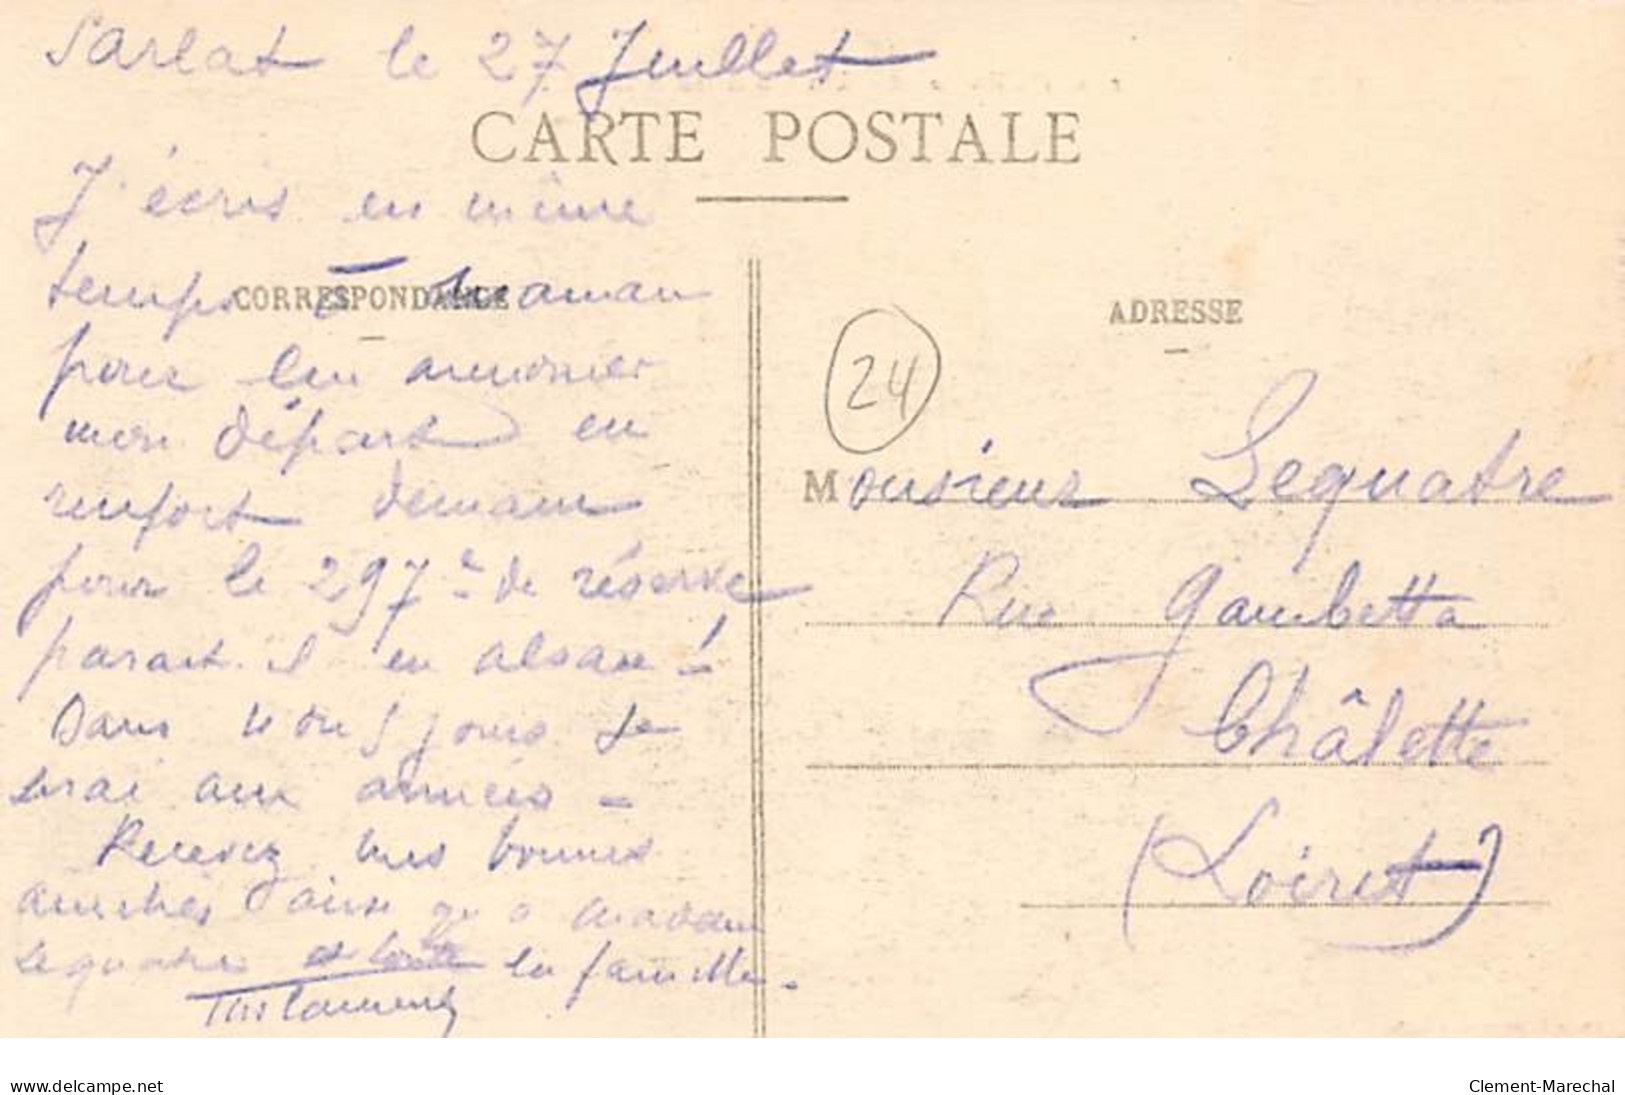 Sarlat le 27 Juillet
CARTE POSTALE
J'écris en même
temps à maman
CORRESPONDANCE
pour lui annoncer
mon départ en
renfort demain
pour le 297e de réserve
parait-il en alsace !
Dans 4 ou 5 jours je
serai aux armées -
Recevez mes bonnes
amitiés ainsi qu'à madame
Lequatre et toute la famille.
ADRESSE
24
Monsieur Lequatre
Rue Gambetta
Châlette
(Loiret)
delcampe.net
Clement-Marechal